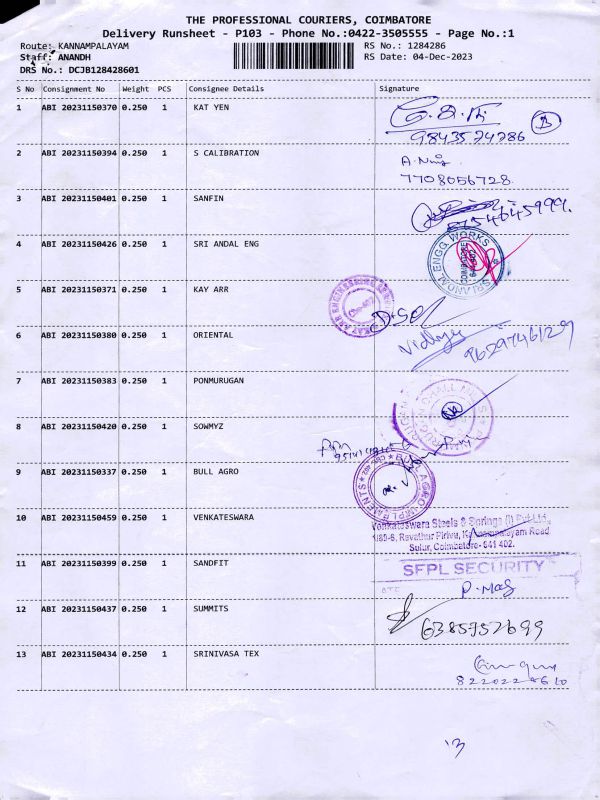 THE PROFESSIONAL COURIERS, COIMBATORE
Delivery Runsheet - P103 - Phone No.:0422-3505555 - Page No.:1
Route: KANNAMPALAYAM
RS No.: 1284286
Staff: ANANDH
RS Date: 04-Dec-2023
DRS No.: DCJB128428601
S No Consignment No Weight PCS Consignee Details Signature
1 ABI 20231150370 0.250 1 KAT YEN
9843574286
2 ABI 20231150394 0.250 1 S CALIBRATION
7708056728
3 ABI 20231150401 0.250 1 SANFIN
4 ABI 20231150426 0.250 1 SRI ANDAL ENG
SRI ANDAL ENGG WORKS
5 ABI 20231150371 0.250 1 KAY ARR
6 ABI 20231150380 0.250 1 ORIENTAL
Vidhya 9629746129
7 ABI 20231150383 0.250 1 PONMURUGAN
8 ABI 20231150420 0.250 1 SOWMYZ
9 ABI 20231150337 0.250 1 BULL AGRO
BULL AGRO IMPLEMENTS
10 ABI 20231150459 0.250 1 VENKATESWARA
Venkateswara Steels & Springs (I) Pvt Ltd.,
Ravathur Pirivu, Kannampalayam Road
Sulur, Coimbatore- 641 402.
11 ABI 20231150399 0.250 1 SANDFIT
SFPL SECURITY
12 ABI 20231150437 0.250 1 SUMMITS
6385752699
13 ABI 20231150434 0.250 1 SRINIVASA TEX
13